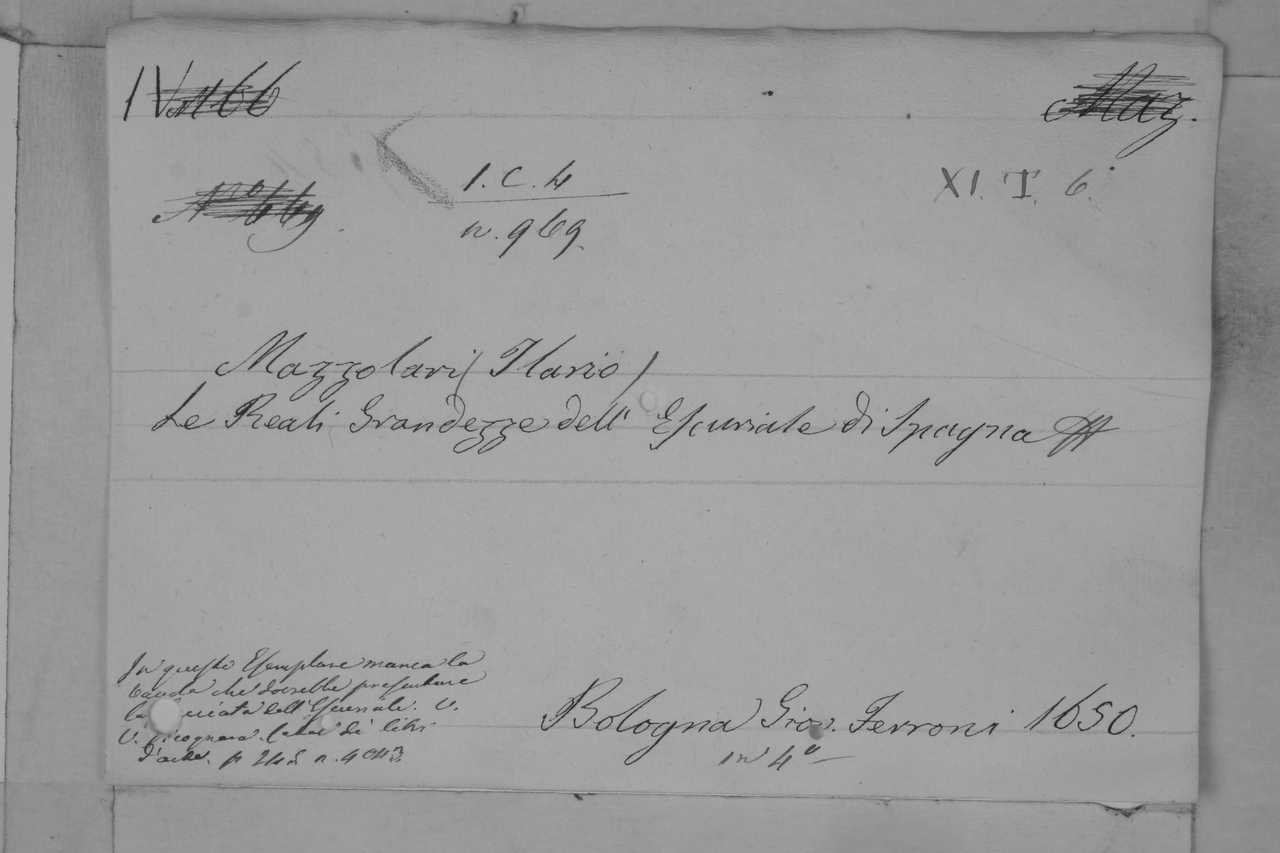 IV M 66 Maz.
N.º 669.
I. C. 4
n. 969.
XI. T. 6.
Mazzolari (Ilario)
Le Reali Grandezze dell' Escuriale di Spagna
In questo Esemplare manca la
tavola che dovrebbe presentare
la facciata dell'Escuriale. V.
V. Cicognara. Catal. di libri
d'arte. p 245 n.
Bologna Giov. Ferroni 1650.
in 4º